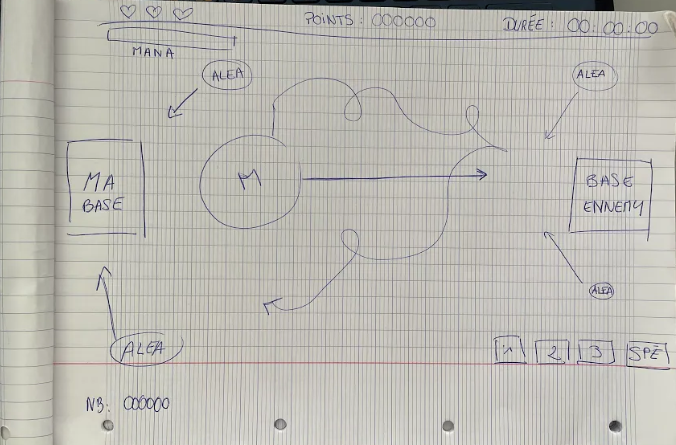 POINTS : 000000
DURÉE : 00:00:00
MANA
ALEA
ALEA
MA
BASE
M
BASE
ENNEMY
ALEA
ALEA
1
2
3
SPÉ
NB: 000000